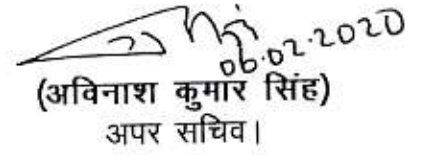 06.02.2020
(अविनाश कुमार सिंह)
अपर सचिव।